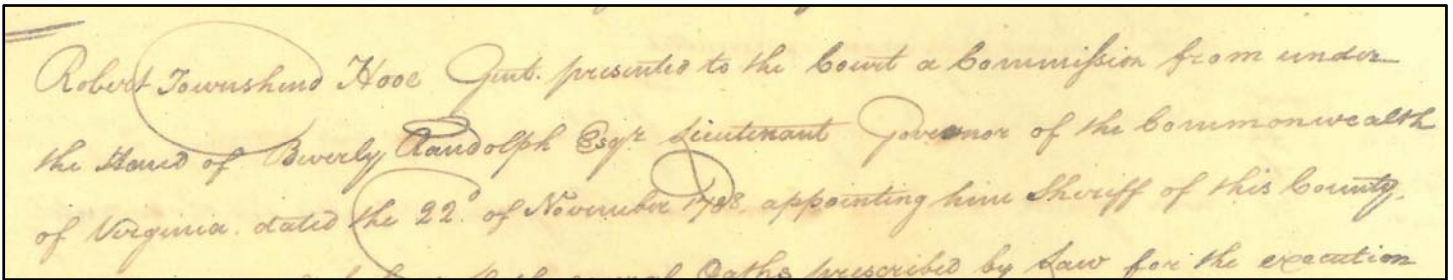 Robert Townshend Hooe Gent. presented to the Court a Commission from under
the Hand of Beverly Randolph Esqr. Lieutenant Governor of the Commonwealth
of Virginia. dated the 22d. of November 1788. appointing him Sheriff of this County.
Oaths prescribed by Law for the execution